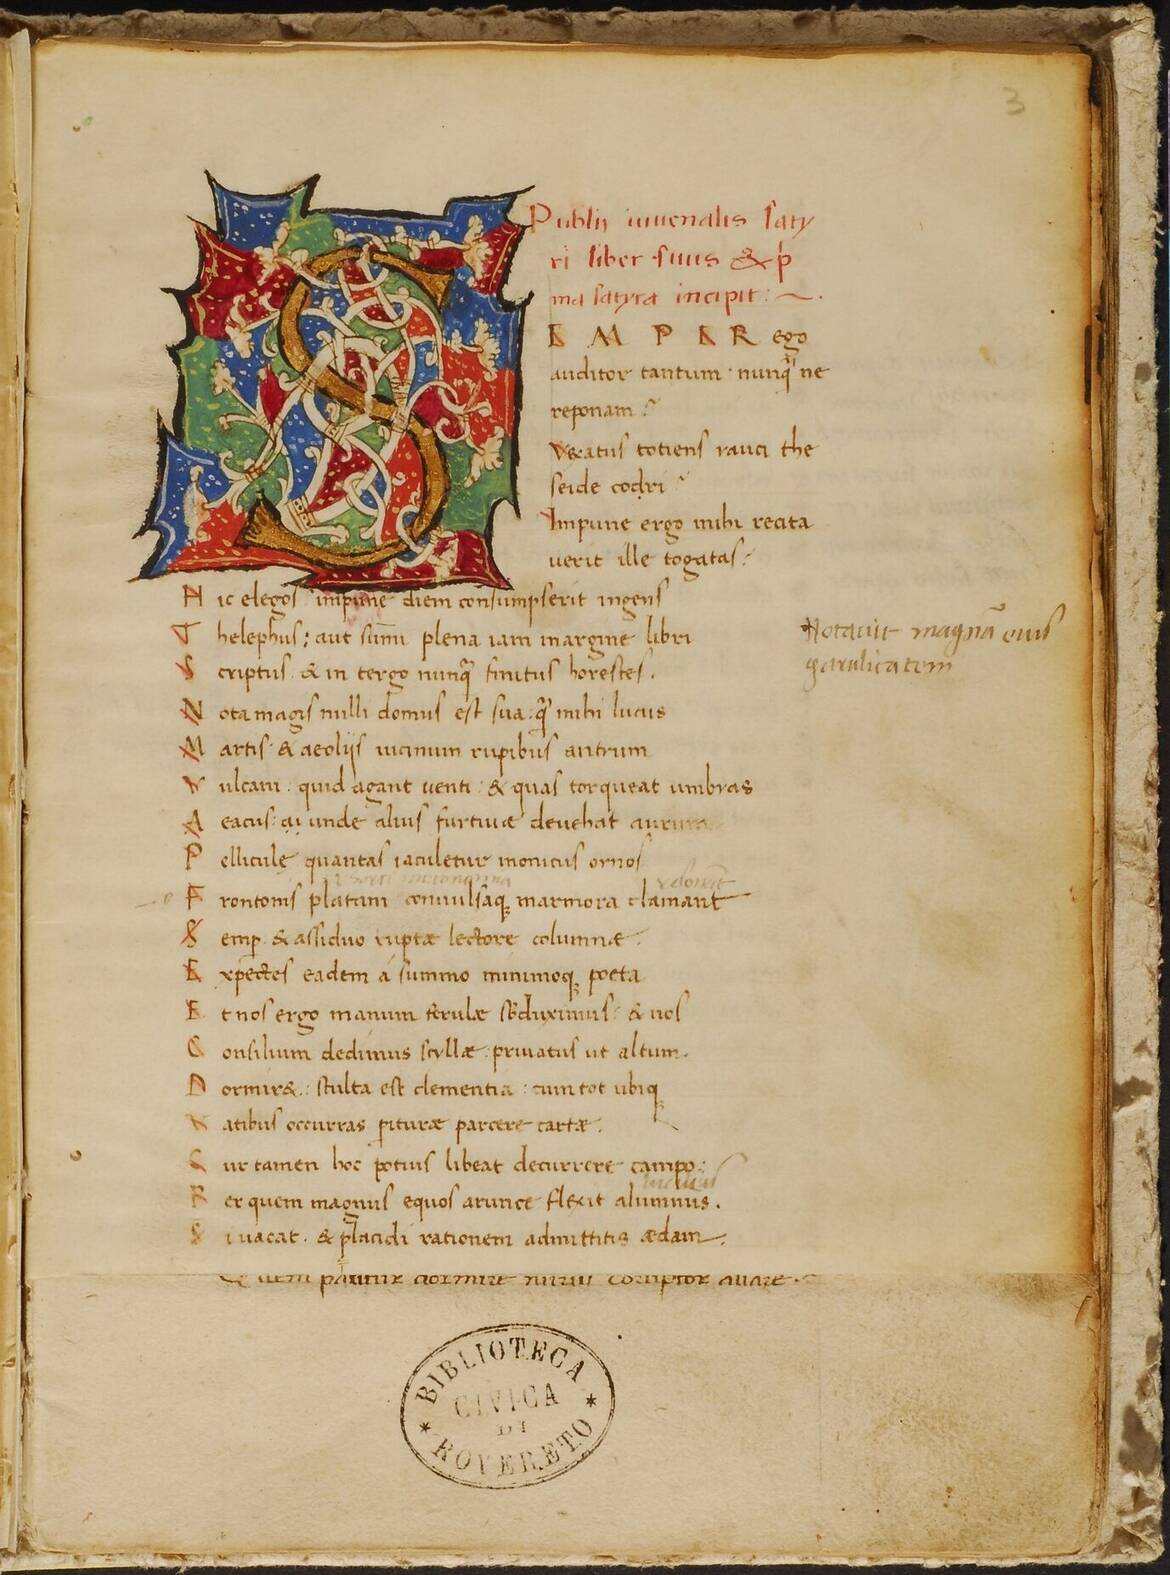 3
Publij iuuenalis saty
ri liber suus & p̱
ma satyra incipit:
S E M P E R ego
auditor tantum nunq̃ ne
reponam?
Vexatus totiens rauci the
seide codri?
Impune ergo mihi recita
uerit ille togatas:
Hic elegos impune diem consumpserit ingens
Thelephus: aut summi plena iam margine libri
Scriptus & in tergo nunq̃ finitus horestes.
Nota magis nulli domus est sua. q̃ mihi lucus
Martis & aeolijs uicinum rupibus antrum
Vulcani. quid agant uenti: & quas torqueat umbras
Aeacus: unde alius furtiuæ deuehat aurum
Pellicule quantas iaculetur monicus ornos
Frontonis platani conuulsaq; marmora clamant
Semp & assiduo ruptæ lectore columnæ.
Expectes eadem a summo minimoq; poeta
Et nos ergo manum ferulæ sbduximus: & nos
Consilium dedimus scyllæ: priuatus ut altum.
Dormir&: stulta est clementia: cum tot ubiq;
Vatibus occurras pituræ parcere cartæ.
Cur tamen hoc potius libeat decurrere campo:
Per quem magnus equos arunce flexit alumnus.
Si uacat. & placidi rationem admittitis ædam.
Quem patitur dormire nurus corruptor auare.
Notauit magnã eius
garulicatem
BIBLIOTECA
CIVICA
DI
ROVERETO